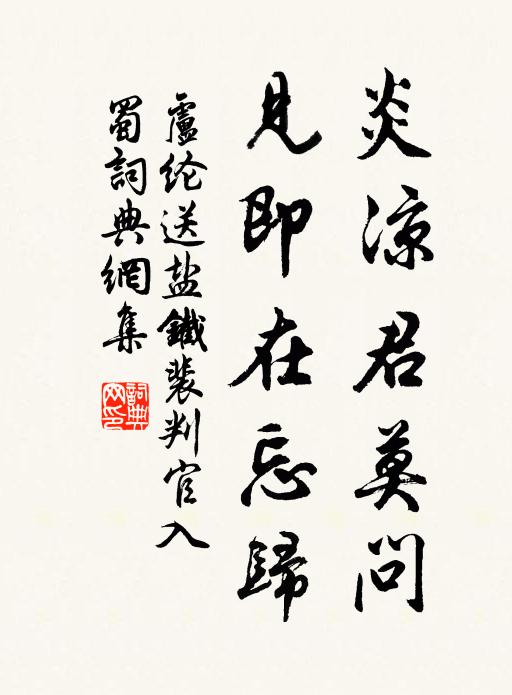 炎凉君莫問
見即在忘歸
盧纶送盐鐵裴判官入
蜀詞典網集
詞典
网印